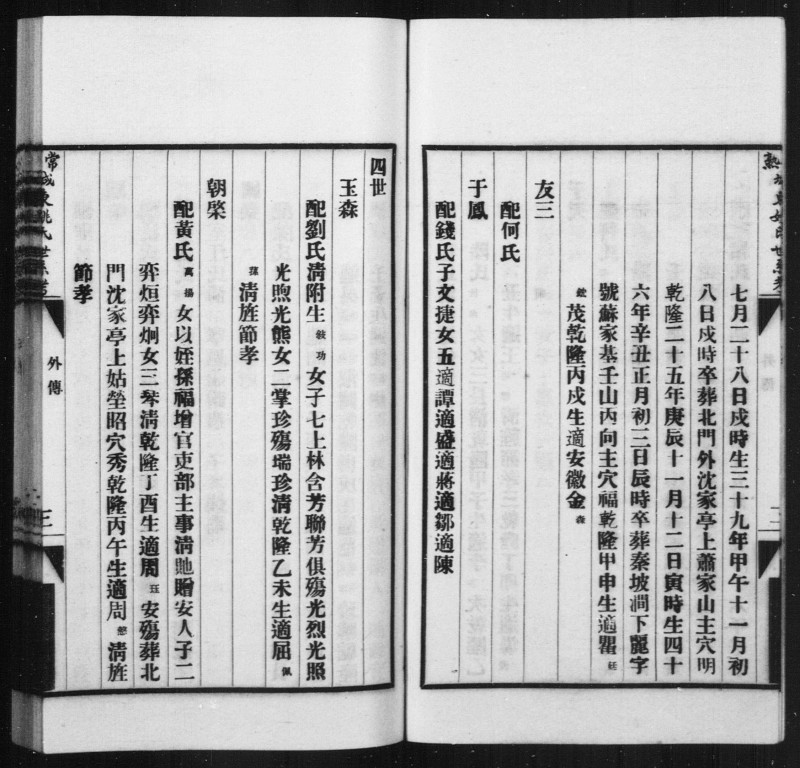 七月二十八日戍時生三十九年甲午十一月初
八日戍時卒葬北門外沈家亭上蕭家山主穴明
乾隆二十五年庚辰十一月十二日寅時生四十
六年辛丑正月初三日辰時卒葬秦坡澗下麗字
號蘇家基壬山丙向主穴福乾隆甲申生適瞿
茂乾隆丙戍生適安徽金森
友三
配何氏
于鳳
配錢氏子文捷女五適譚適盛適蔣適鄒適陳
四世
玉森
配劉氏清附生毓功女子七上林含芳聯芳俱殤光烈光照
光煦光熊女二掌珍殤瑞珍清乾隆乙未生適屈佩
清旌節孝
朝棨
配黃氏萬揚女以姪孫福增官吏部主事清貤贈安人子二
弈烜弈炯女三琴清乾隆丁酉生適周玨安殤葬北
門沈家亭上姑塋昭穴秀乾隆丙午生適周恕清旌
節孝
外傳
三